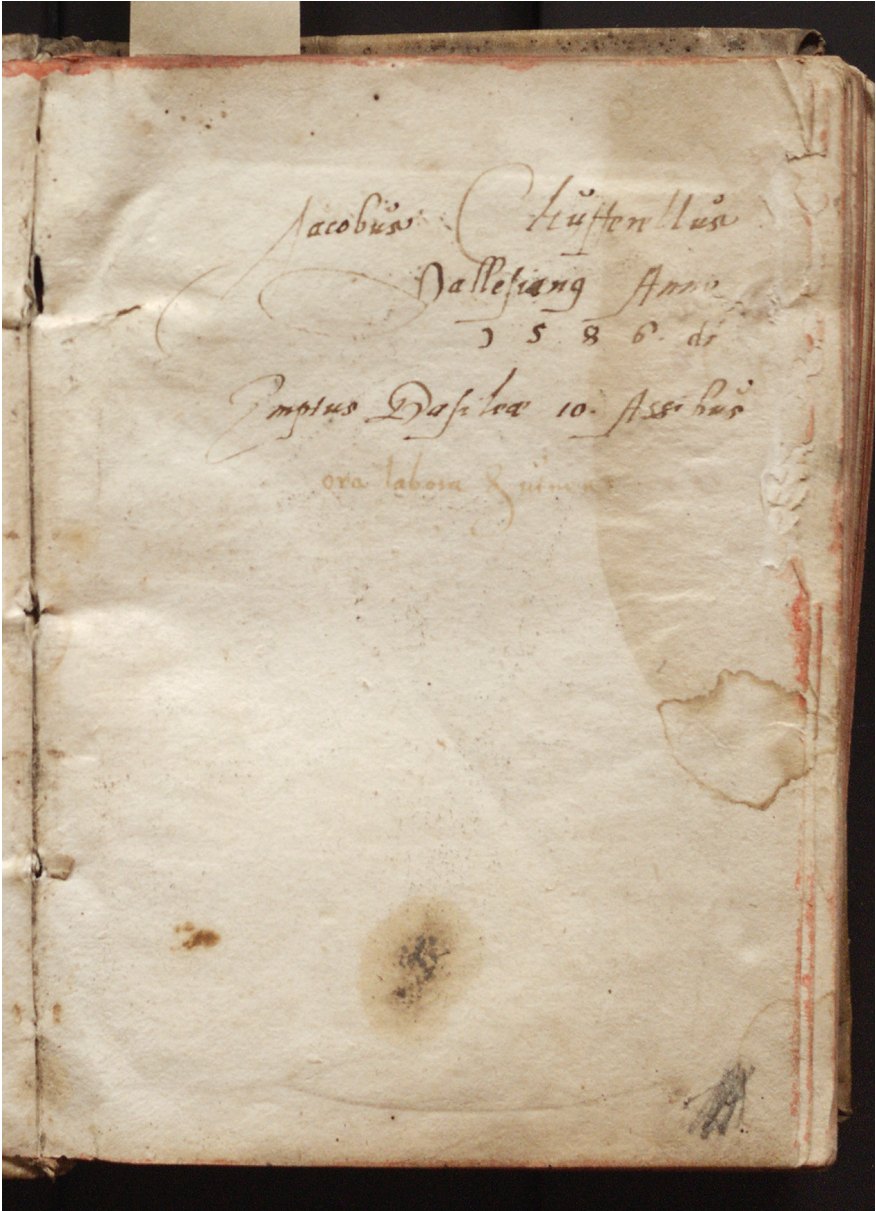 Jacobus Chüfferellus
Vallesianꝰ Anno
1586. di
Emptus Basileæ 10. Assibus
ora labora &